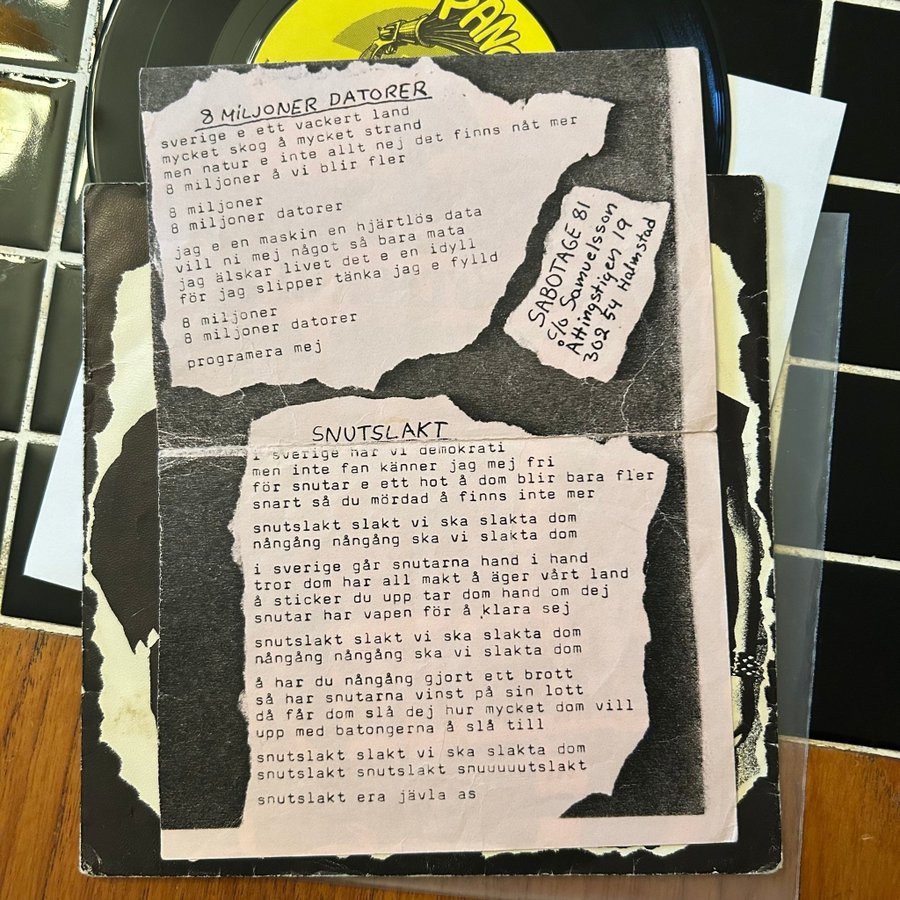 PANG
8 MILJONER DATORER
sverige e ett vackert land
mycket skog å mycket strand
men natur e inte allt nej det finns nåt mer
8 miljoner å vi blir fler
8 miljoner
8 miljoner datorer
jag e en maskin en hjärtlös data
vill ni mej något så bara mata
jag älskar livet det e en idyll
för jag slipper tänka jag e fylld
8 miljoner
8 miljoner datorer
programera mej
SABOTAGE 81
c/o Samuelsson
Attingstigen 19
302 54 Halmstad
SNUTSLAKT
i sverige har vi demokrati
men inte fan känner jag mej fri
för snutar e ett hot å dom blir bara fler
snart så du mördad å finns inte mer
snutslakt slakt vi ska slakta dom
nångång nångång ska vi slakta dom
i sverige går snutarna hand i hand
tror dom har all makt å äger vårt land
å sticker du upp tar dom hand om dej
snutar har vapen för å klara sej
snutslakt slakt vi ska slakta dom
nångång nångång ska vi slakta dom
å har du nångång gjort ett brott
så har snutarna vinst på sin lott
då får dom slå dej hur mycket dom vill
upp med batongerna å slå till
snutslakt slakt vi ska slakta dom
snutslakt snutslakt snuuuuutslakt
snutslakt era jävla as